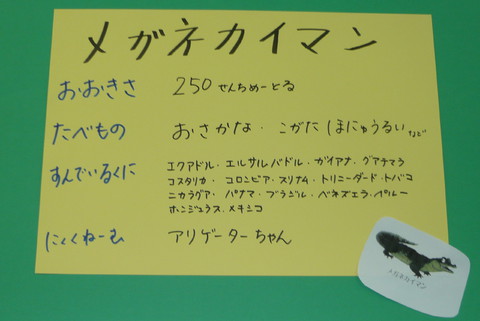 メガネカイマン
おおきさ 250せんちめーとる
たべもの おさかな・こがたほにゅうるいなど
すんでいるくに エクアドル・エルサルバドル・ガイアナ・グアテマラ
コスタリカ・コロンビア・スリナム・トリニーダード・トバコ
ニカラグア・パナマ・ブラジル・ベネズエラ・ペルー
ホンジュラス・メキシコ
にっくねーむ アリゲーターちゃん
メガネカイマン